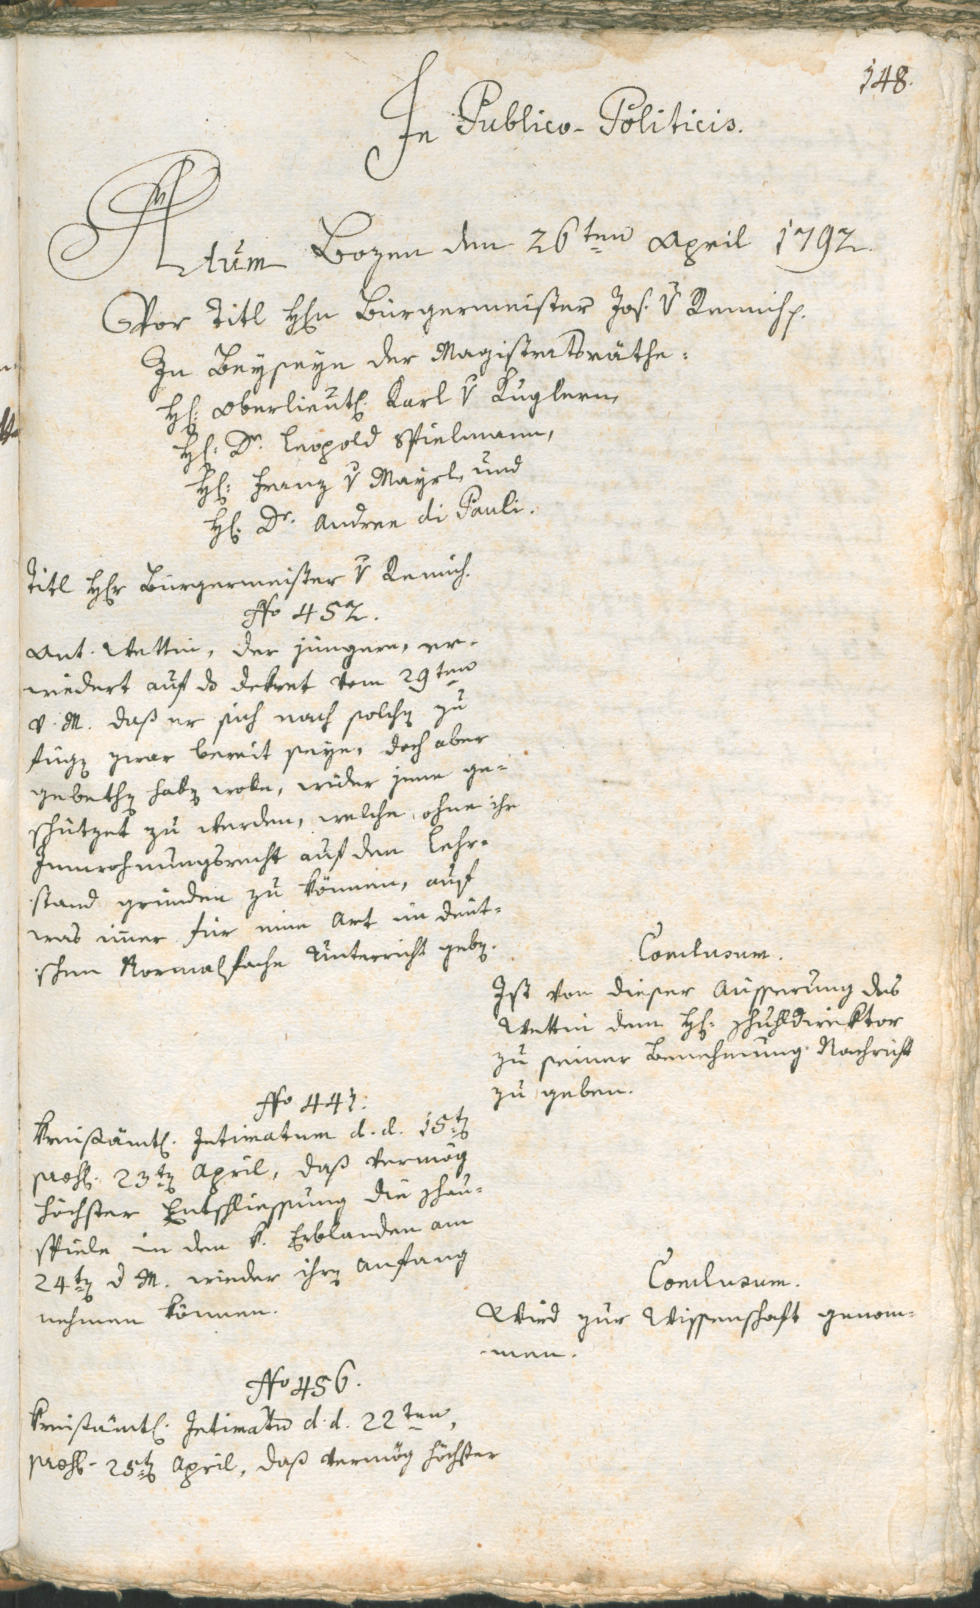 148.
In Publico-Politicis.
Actum Bozen den 26ten April 1792.
Vor Titl Hℓn Bürgermeister Jos. v Remich.
In Beyseyn der Magistratsräthe:
Hℓ: Oberlieutℓ. Karl v Kuglern,
Hℓ: Dr. Leopold Spielmann,
Hℓ: Franz v Mayrl, und
Hℓ: Dr. Andree di Pauli.
Titl Hℓr Bürgermeister v Remich.
No 452.
Ant. Wettin, der jüngere, er-
wiedert auf ds Dekret vom 29ten
v. M. daß er sich nach solchen zu
fügen zwar bereit seye, doch aber
gebethen haben wolle, wider jene ge-
schützet zu werden, welche, ohne ihr
Innwohnungsrecht auf den Lehr-
stand gründen zu können, auf
was immer für eine Art im deut-
schen Normalfache Unterricht geben.
Conclusum.
Ist von dieser Äusserung des
Wettin dem Hℓ: Schuldirektor
zu seiner Benehmung Nachricht
zu geben.
No 441.
Kreisämtℓ. Intimatum d. d. 15ten
præs. 23ten April, daß vermög
höchster Entschliessung die Schau-
spiele in den k. Erblanden am
24ten d M. wieder ihren Anfang
nehmen können.
Conclusum.
Wird zur Wissenschaft genom-
men.
No 456.
Kreisämtℓ. Intimatum d. d. 22ten,
præs. 25ten April, daß vermög höchster